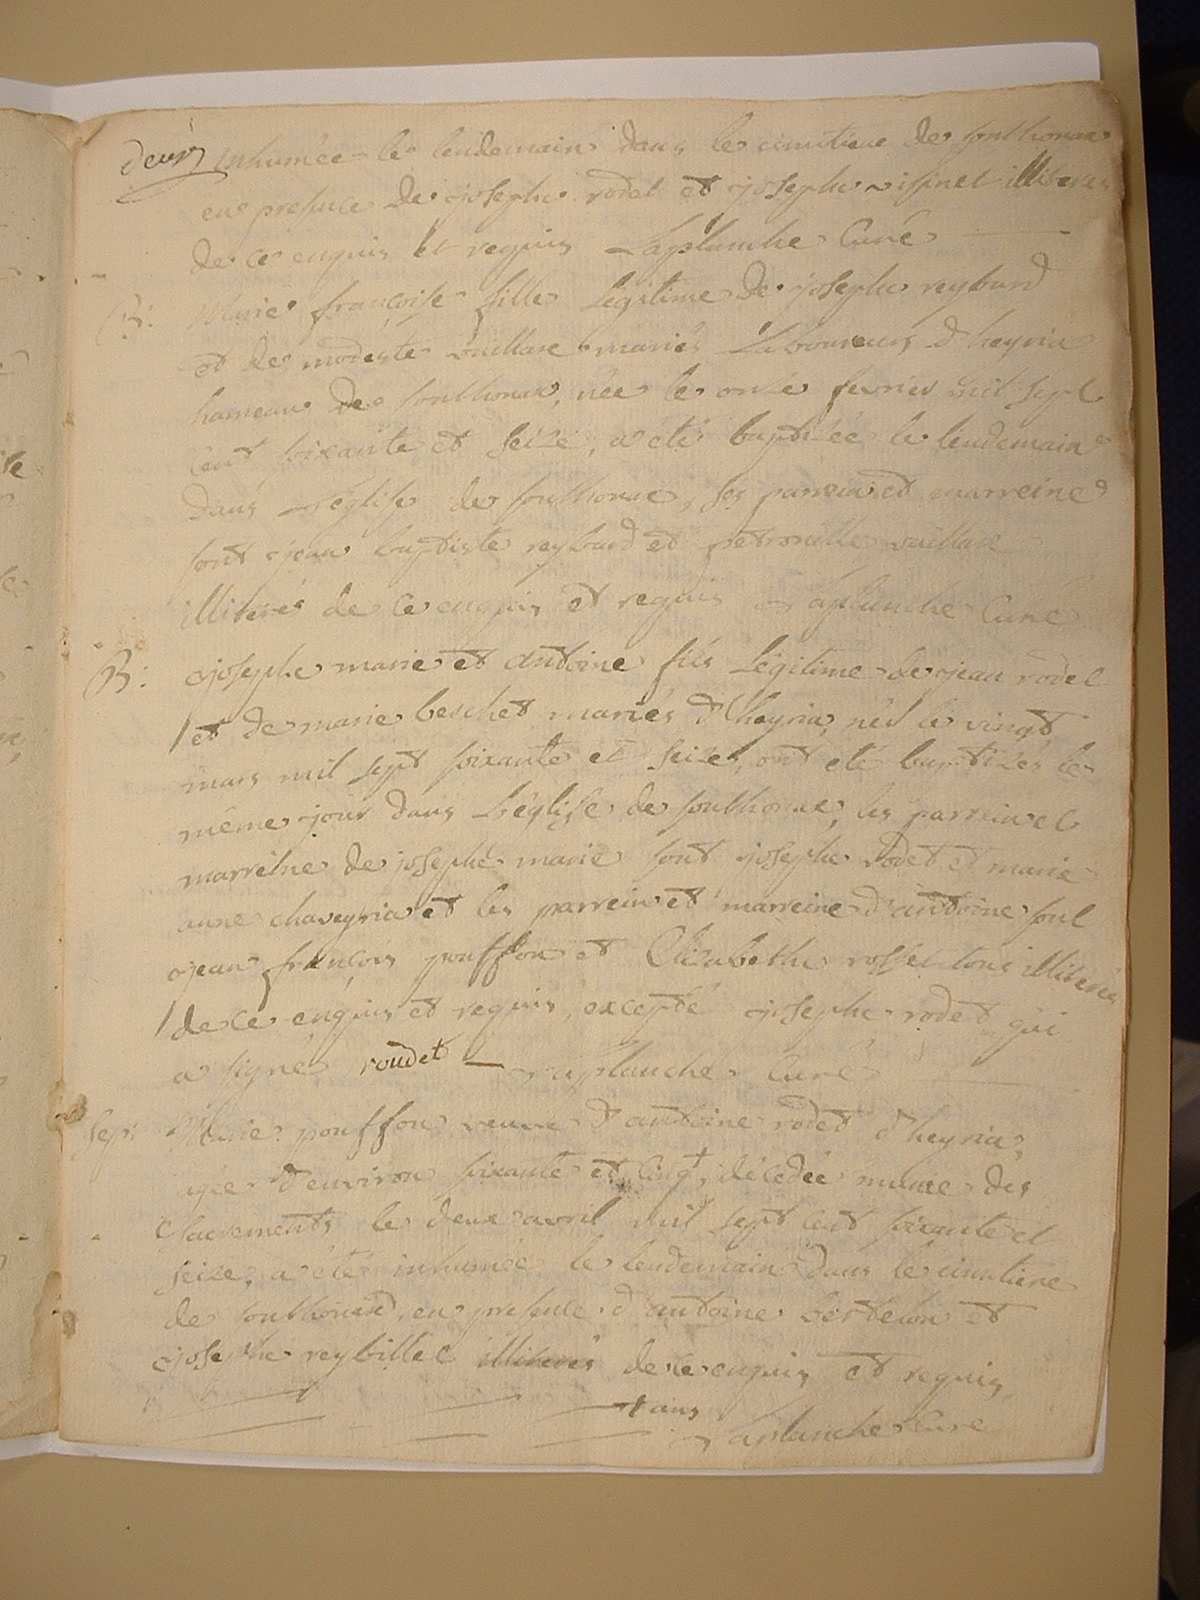 deux inhumée le lendemain dans le cimetiere de southonax
en presence de joseph rodet et joseph illiterés
de ce enquis et requis Laplanche Curé
B: Marie françoise fille Légitime de joseph reybard
et de modeste vuillare mariés Laboureurs d'heyria
hameau de southonax, née le onze fevrier mil sept
cent soixante et seize, a été baptizée le lendemain
dans L'église de southonax, ses parrein et marreine
sont jean baptiste reybard et petronille vuillare
illiterés de ce enquis et requis Laplanche Curé
B: joseph marie et antoine fils Légitime de jean rodet
et de marie beschet mariés d'heyria, nés le vingt
mars mil sept soixante et seize, ont été baptizés le
même jour dans L'église de southonax, les parrein et
marreine de joseph marie sont joseph rodet et marie
anne chaveyria et les parrein et marreine d'antoine sont
jean françois pouffon et Elizabeth rosset tous illiterés
de ce enquis et requis, excepté joseph rodet qui
a signé roudet Laplanche Curé
sep: Marie pouffon veuve d'antoine rodet d'heyria,
agée d'environ soixante et cinq +, décédée munie des
Sacrements le deux avril mil sept cent soixante et
seize, a été inhumée le lendemain dans le cimetiere
de southonax, en presence d'antoine berthelon et
joseph reybillet illiterés de ce enquis et requis
+ ans
Laplanche Curé